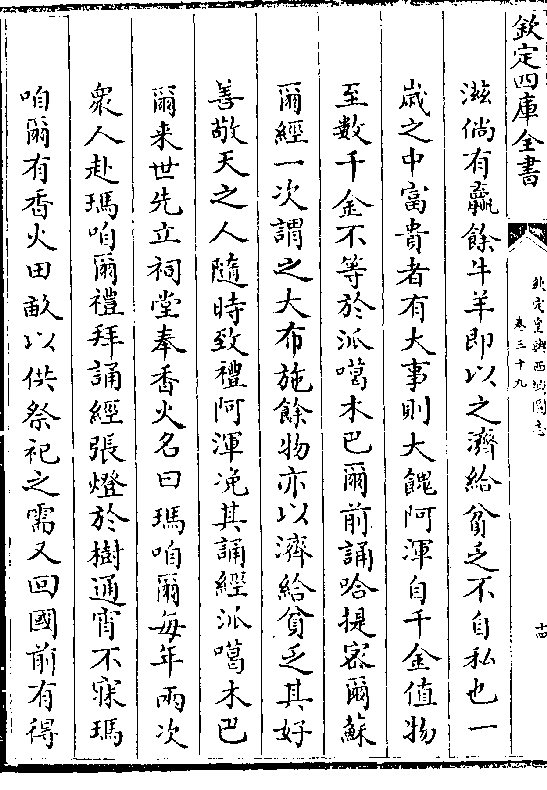 欽定四庫全書
欽定皇輿西域圖志
卷三十九
十四
滋倘有羸餘牛羊即以之濟給貧乏不自私也一
歲之中富貴者有大事則大餽阿渾自千金值物
至數千金不等於派噶木巴爾前誦哈提密爾蘇
爾經一次謂之大布施餘物亦以濟給貧乏其好
善敬天之人隨時致禮阿渾凂其誦經派噶木巴
爾来世先立祠堂奉香火名曰瑪咱爾每年兩次
衆人赴瑪咱爾禮拜誦經張燈於樹通宵不寐瑪
咱爾有香火田畝以供祭祀之需又回國前有得